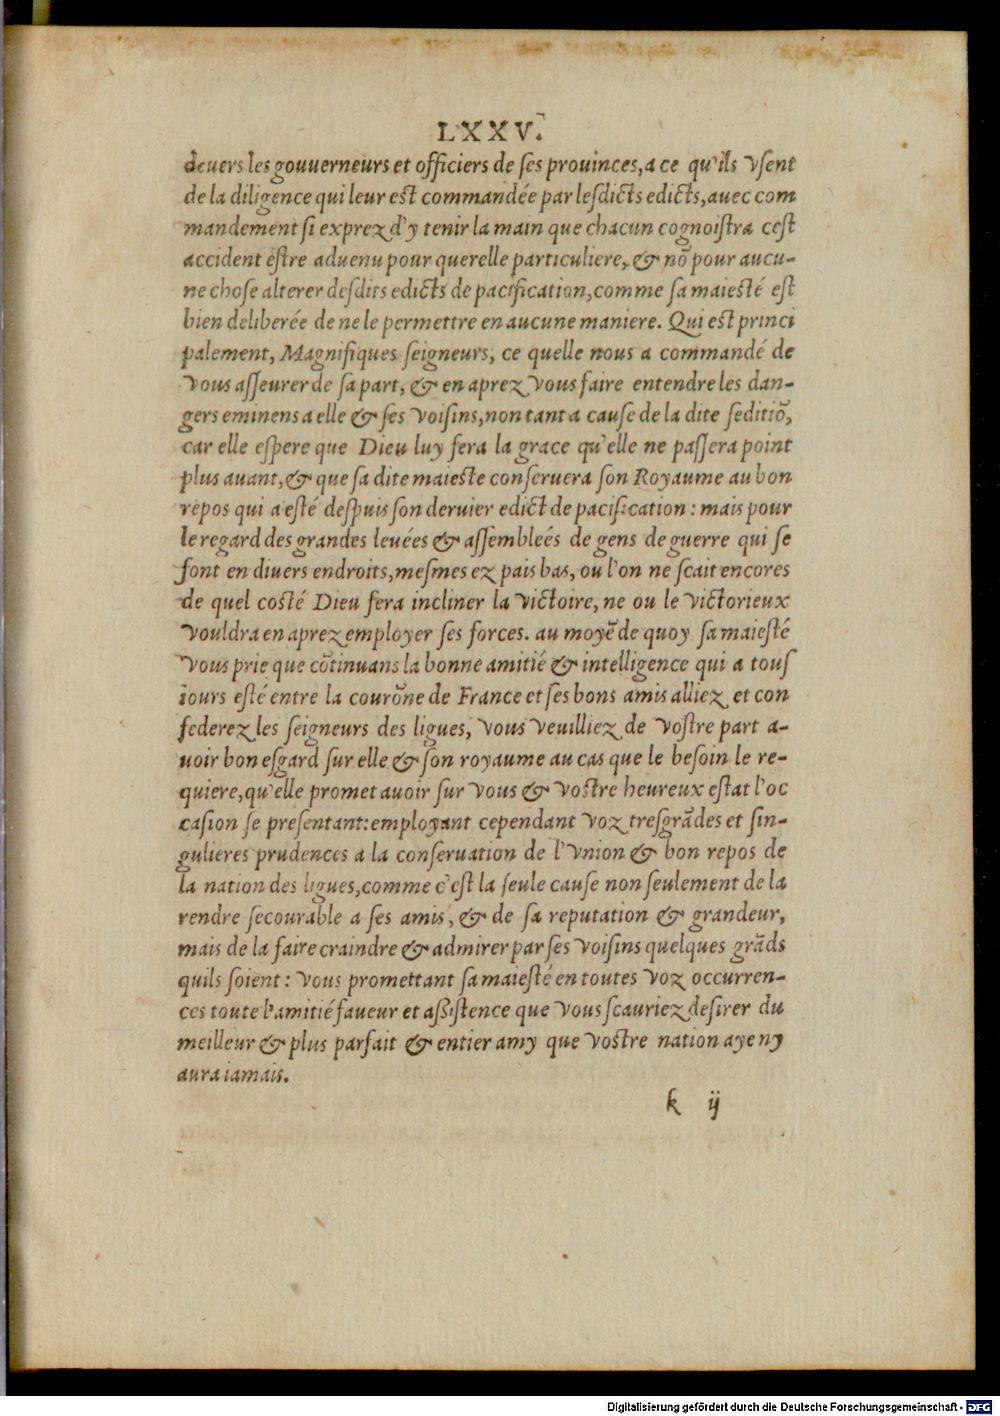 LXXV.
deuers les gouuerneurs et officiers de ſes prouinces, a ce qu'ils vſent
de la diligence qui leur eſt commandée par leſdicts edicts, auec com
mandement ſi exprez d'y tenir la main que chacun cognoiſtra ceſt
accident eſtre aduenu pour querelle particuliere, & nō pour aucu-
ne choſe alterer deſdits edicts de pacification, comme ſa maieſté eſt
bien deliberée de ne le permettre en aucune maniere. Qui eſt princi
palement, Magnifiques ſeigneurs, ce quelle nous a commandé de
vous aſſeurer de ſa part, & en aprez vous faire entendre les dan-
gers eminens a elle & ſes voiſins, non tant a cauſe de la dite ſeditiō,
car elle eſpere que Dieu luy fera la grace qu'elle ne paſſera point
plus auant, & que ſa dite maieſte conſeruera ſon Royaume au bon
repos qui a eſté deſpuis ſon deruier edict de pacification: mais pour
le regard des grandes leuées & aſſembleés de gens de guerre qui ſe
font en diuers endroits, meſmes ez pais bas, ou l'on ne ſcait encores
de quel coſté Dieu fera incliner la victoire, ne ou le victorieux
vouldra en aprez employer ſes forces. au moyē de quoy ſa maieſté
vous prie que cōtinuans la bonne amitié & intelligence qui a touſ
iours eſté entre la courōne de France et ſes bons amis alliez et con
federez les ſeigneurs des ligues, vous veuilliez de voſtre part a-
uoir bon eſgard ſur elle & ſon royaume au cas que le beſoin le re-
quiere, qu'elle promet auoir ſur vous & voſtre heureux eſtat l'oc
caſion ſe preſentant: employant cependant voz treſgrādes et ſin-
gulieres prudences a la conſeruation de l'vnion & bon repos de
la nation des ligues, comme c'eſt la ſeule cauſe non ſeulement de la
rendre ſecourable a ſes amis, & de ſa reputation & grandeur,
mais de la faire craindre & admirer par ſes voiſins quelques grāds
quils ſoient: vous promettant ſa maieſté en toutes voz occurren-
ces toute l'amitié faueur et aſſiſtence que vous ſcauriez deſirer du
meilleur & plus parfait & entier amy que voſtre nation aye ny
aura iamais.
k ij
Digitalisierung gefördert durch die Deutsche Forschungsgemeinschaft - DFG